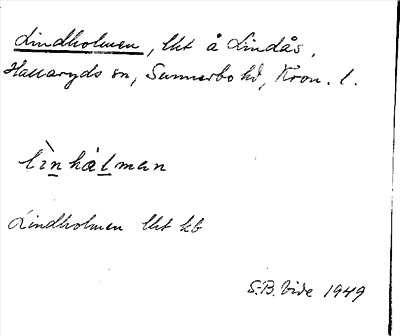 Lindholmen, lht å Lindås,
Hallaryds sn, Sunnerbo hd, Kron. l.
lìn hålman
Lindholmen lht kb
S.B. Vide 1949